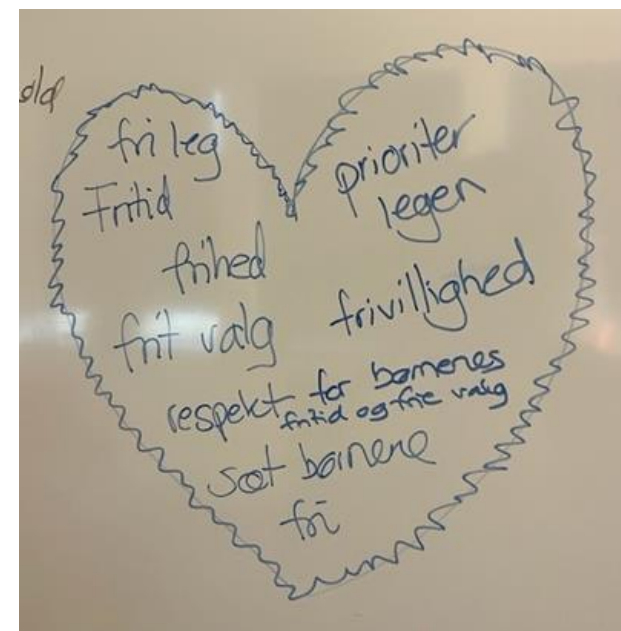 fri leg
Fritid
frihed
frit valg
prioriter
legen
frivillighed
respekt for børnenes
fritid og frie valg
sæt børnene
fri